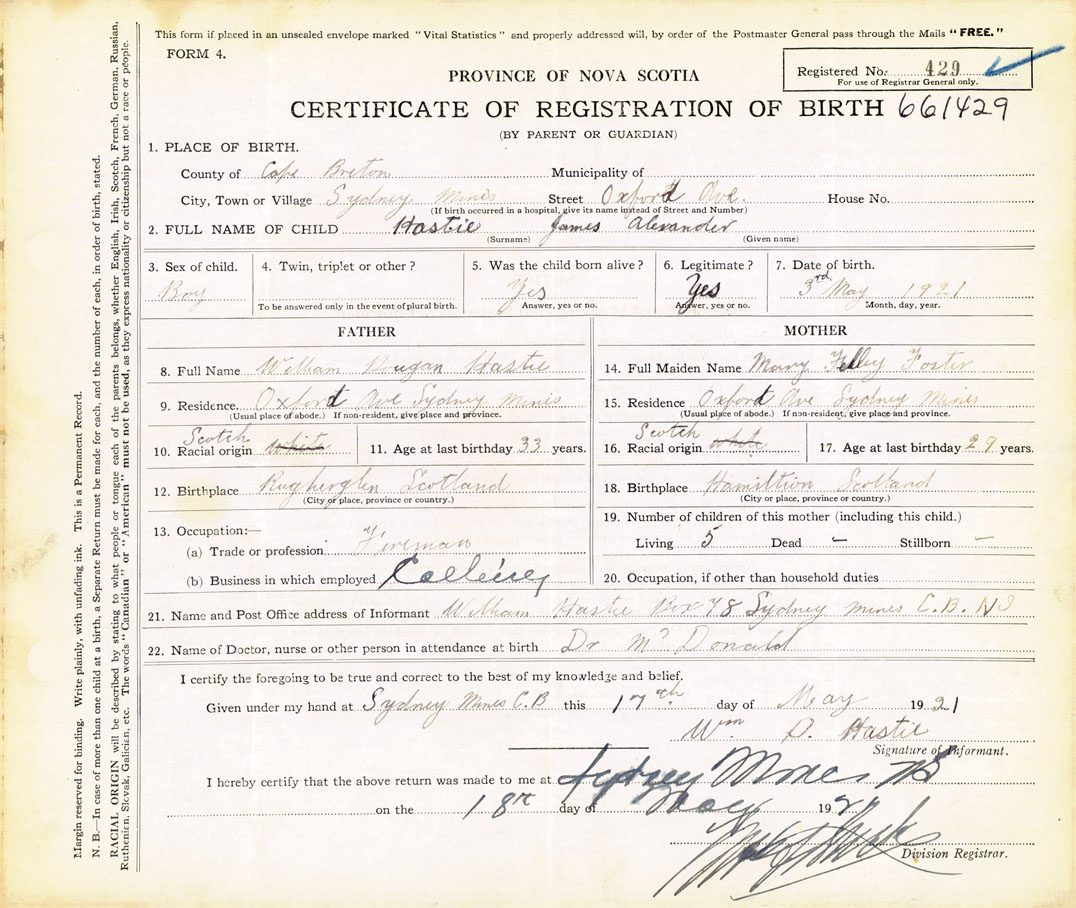 This form if placed in an unsealed envelope marked "Vital Statistics" and properly addressed will, by order of the Postmaster General pass through the Mails "FREE."
FORM 4.
Registered No. 429
For use of Registrar General only.
PROVINCE OF NOVA SCOTIA
CERTIFICATE OF REGISTRATION OF BIRTH 661429
(BY PARENT OR GUARDIAN)
1. PLACE OF BIRTH.
County of Cape Breton Municipality of
City, Town or Village Sydney Mines Street Oxford Ave. House No.
(If birth occurred in a hospital, give its name instead of Street and Number)
2. FULL NAME OF CHILD Hastie James Alexander
(Surname) (Given name)
3. Sex of child. 4. Twin, triplet or other? 5. Was the child born alive? 6. Legitimate? 7. Date of birth.
Boy Yes Yes 3rd May 1921
To be answered only in the event of plural birth. Answer, yes or no. Answer, yes or no. Month, day, year.
FATHER
8. Full Name William Hastie
9. Residence. Oxford Ave Sydney Mines
(Usual place of abode.) If non-resident, give place and province.
Scotch
10. Racial origin white 11. Age at last birthday 33 years.
12. Birthplace Scotland
(City or place, province or country.)
13. Occupation:—
(a) Trade or profession Fireman
(b) Business in which employed
MOTHER
14. Full Maiden Name Mary Foster
15. Residence Oxford Ave Sydney Mines
(Usual place of abode.) If non-resident, give place and province.
Scotch
16. Racial origin white 17. Age at last birthday 29 years.
18. Birthplace Hamiltion Scotland
(City or place, province or country.)
19. Number of children of this mother (including this child.)
Living 5 Dead – Stillborn –
20. Occupation, if other than household duties
21. Name and Post Office address of Informant William Hastie Box 78 Sydney mines C.B. NS
22. Name of Doctor, nurse or other person in attendance at birth Dr Mc Donald
I certify the foregoing to be true and correct to the best of my knowledge and belief.
Given under my hand at Sydney Mines C.B this 17th day of May 1921
Wm D. Hastie
Signature of Informant.
I hereby certify that the above return was made to me at Sydney Mines NS
on the 18th day of May 192
Division Registrar.
Margin reserved for binding. Write plainly, with unfading ink. This is a Permanent Record.
N. B.—In case of more than one child at a birth, a Separate Return must be made for each, and the number of each, in order of birth, stated.
RACIAL ORIGIN will be described by stating to what people or tongue each of the parents belongs, whether English, Irish, Scotch, French, German, Russian,
Ruthenian, Slovak, Galician, etc. The words "Canadian" or "American" must not be used, as they express nationality or citizenship but not a race or people.